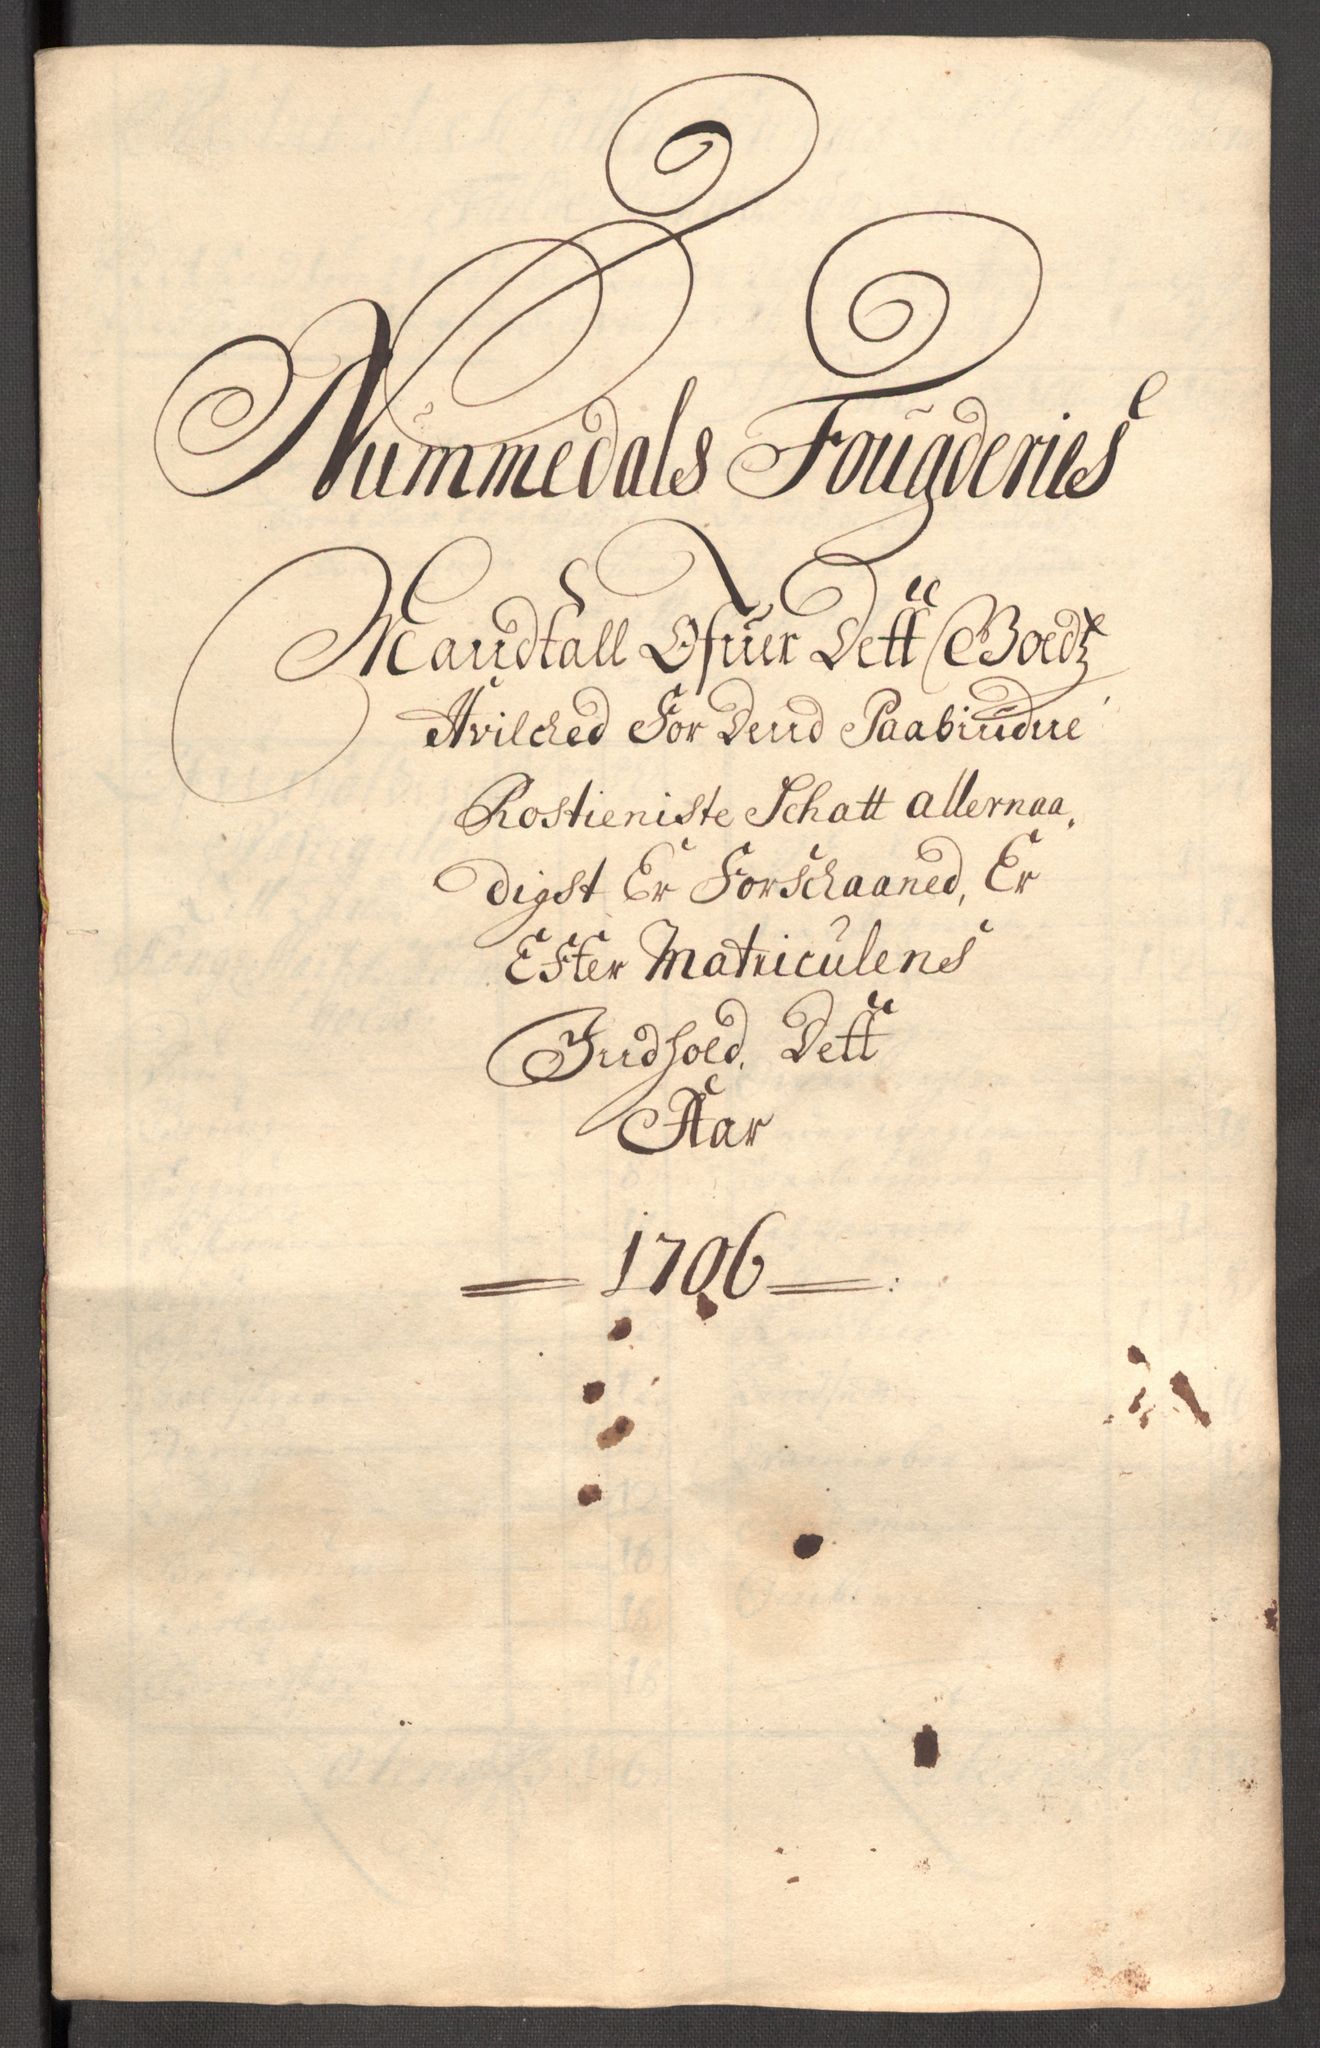 Nummedals Fougderies
Mandtall Ofuer Dett Goedtz
Hvilched For Dend Paabudne
Rostieniste Schatt allernaa,
digst Er Forschaaned, Er
Efter Matriculens
Indhold, Dett
Aar
1706